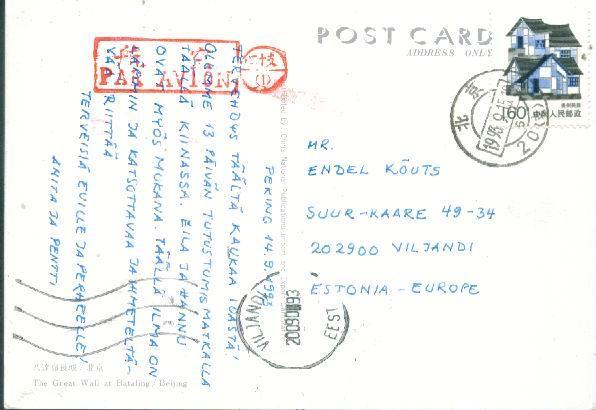 POST CARD
ADDRESS ONLY
PAR AVION
(1)
PEKING 14.9.1993
TERVEHDYS TÄÄLTÄ KAUKAA IDÄSTÄ!
OLEMME 13 PÄIVÄN TUTUSTUMISMATKALLA
TÄÄLLÄ KIINASSA. EILA JA HANNU
OVAT MYÖS MUKANA. TÄÄLLÄ ILMA ON
LÄMMIN JA KATSOTTAVAA JA IHMETELTÄ-
VÄÄ RIITTÄÄ
TERVEISIÄ EVILLE JA PERHEELLE!
ANITA JA PENTTI
MR.
ENDEL KÕUTS
SUUR-KAARE 49-34
202900 VILJANDI
ESTONIA-EUROPE
贵州民居
60分
中国人民邮政
北京
VILJANDI
200900993
EESTI
八达岭长城／北京
The Great Wall at Bataling / Beijing